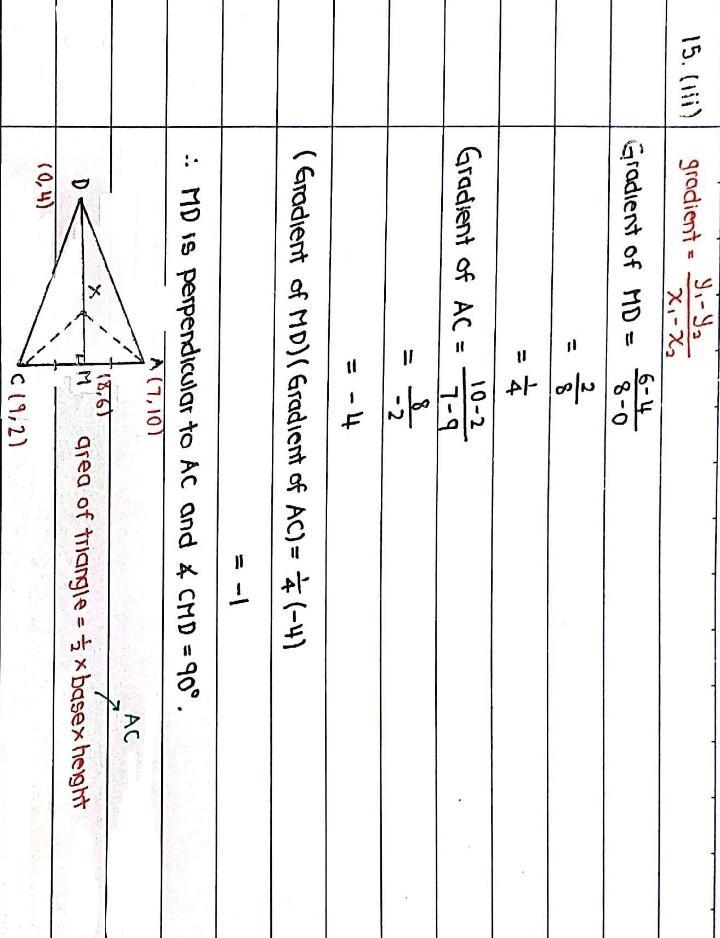 15. (iii) gradient = y₁-y₂ / x₁-x₂
Gradient of MD = 6-4 / 8-0
= 2/8
= 1/4
Gradient of AC = 10-2 / 7-9
= 8 / -2
= -4
(Gradient of MD)(Gradient of AC) = 1/4 (-4)
= -1
∴ MD is perpendicular to AC and ∡ CMD = 90°.
A (7,10)
D
(0,4)
X
M
(8,6)
C (9,2)
AC
area of triangle = 1/2 × base × height